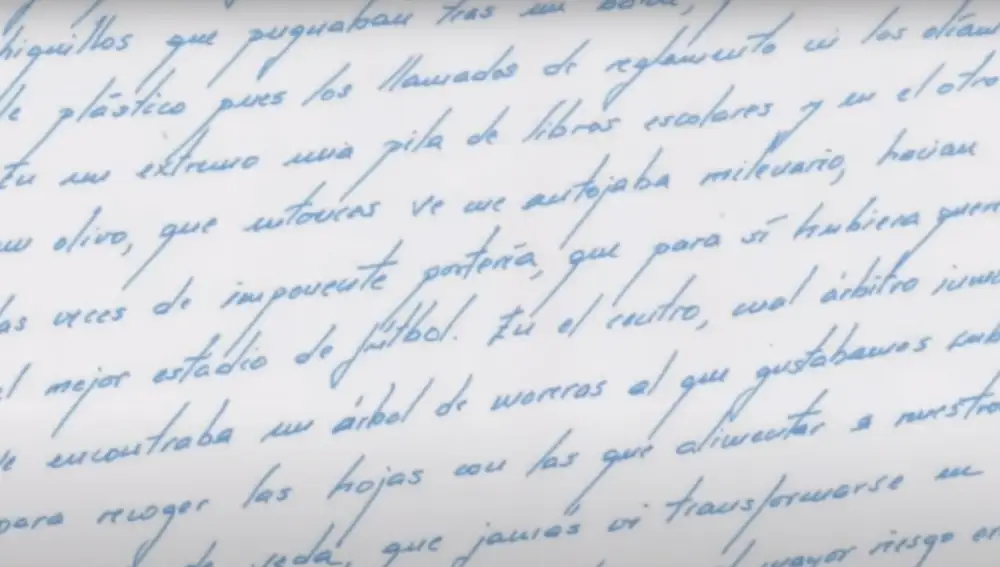 higuillos que pugnaban tras un balón,
de plástico pues los llamados de reglamento ni los olíam
En un extremo una pila de libros escolares y en el otro
un olivo, que entonces se me antojaba milenario, hacían
las veces de imponente portería, que para sí hubiera quer
el mejor estadio de fútbol. En el centro, cual árbitro inmu
se encontraba un árbol de moreras al que gustábamos sub
para recoger las hojas con las que alimentar a nuestro
de seda, que jamás vi transformarse en
mayor riesgo er